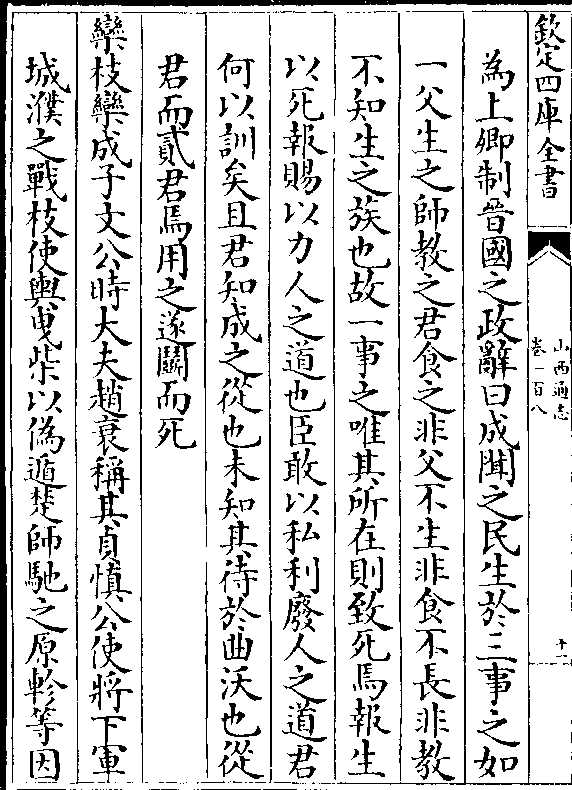 欽定四庫全書
山西通志
卷一百八
十一
為上卿制晉國之政辭曰成聞之民生於三事之如
一父生之師教之君食之非父不生非食不長非教
不知生之族也故一事之唯其所在則致死焉報生
以死報賜以力人之道也臣敢以私利廢人之道君
何以訓矣且君知成之從也未知其待於曲沃也從
君而貳君焉用之遂鬬而死
欒枝欒成子文公時大夫趙衰稱其貞慎公使將下軍
城濮之戰枝使輿曳柴以偽遁楚師馳之原軫等因